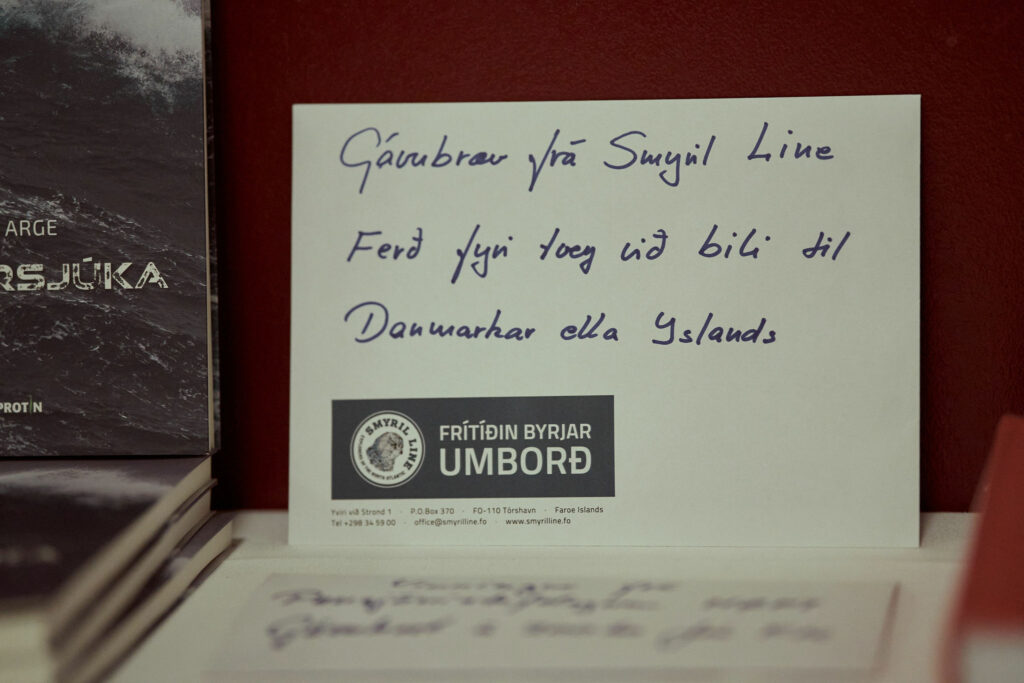 ARGE
RSJÚKA
PROTIN
Gávubræv frá Smyril Line
Ferð fyri tvey við bili til
Danmarkar ella Íslands
SMYRIL LINE
FRÍTÍÐIN BYRJAR
UMBORÐ
Yviri við Strond 1 · P.O.Box 370 · FO-110 Tórshavn · Faroe Islands
Tel +298 34 59 00 · office@smyrilline.fo · www.smyrilline.fo